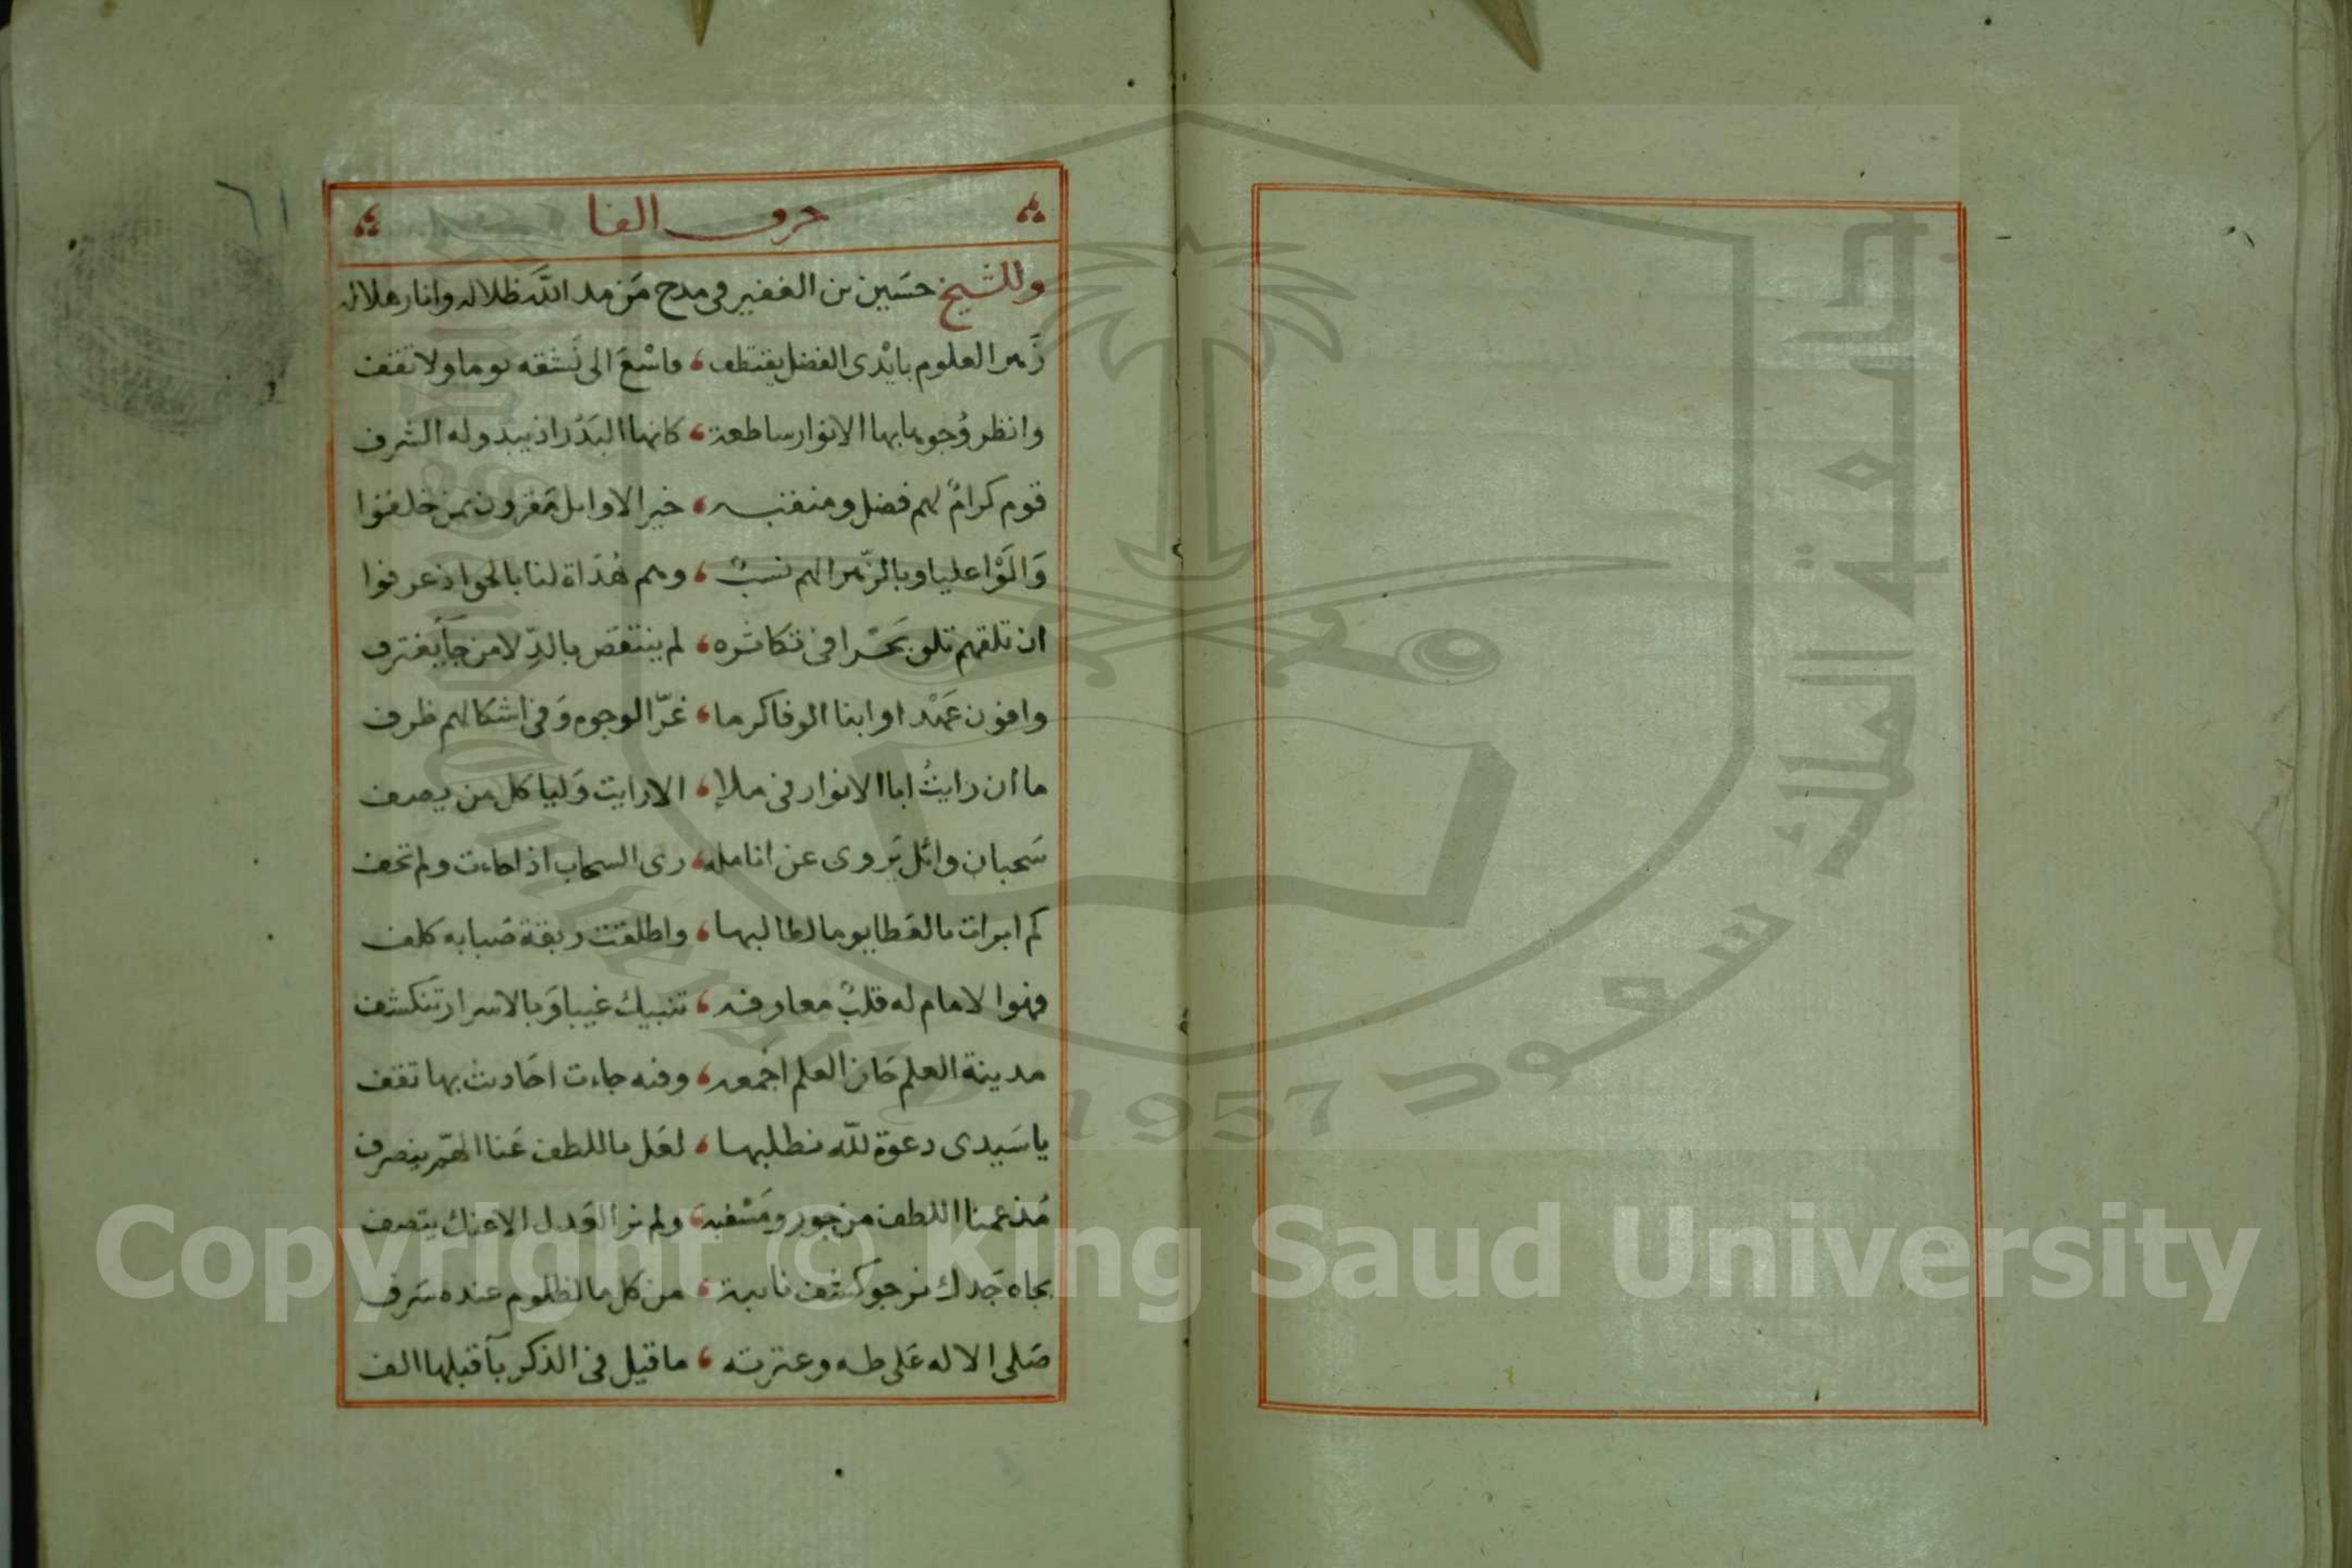 ٦١
حرف الفا
وللشيخ حسَين بن الفقير في مدح مَن مد اللّه ظلاله وانار هلاله
زَهر العلوم بايْدى الفضل يقتطف ، فاسْعَ الى نَشقه يوما ولا تقف
وانظر وُجوها بها الانوار ساطعة ، كانها البَدْر اذ يبدو له الشرف
قوم كرامٌ لهم فضل ومنقبه ، خير الاوايل مَقرون بمن خلفوا
وَالَوْا عليا وبالزّهرا لهم نسبٌ ، وهم هُدَاة لنا بالحق اذ عرفوا
ان تلقهم تلق بَحْرا فى تكاثره ، لم ينتقص بالدِّلا من جآ يغترف
وافون عَهْدا وابنا الوفا كرما ، غرّ الوجوه وَفى اشكالهم ظرف
ما ان رايتُ ابا الانوار فى ملاٍ ، الا رايت وَليا كل من يصف
سَحبان وائل يَروى عن انامله ، رى السحاب اذا جاءت ولم تخف
كم ابرات بالعَطا يوما لطالبها ، واطلقت ربقة صَبا به كلف
فهوا لامام له قلبٌ معارفه ، تنبيك غيبا وَبالاسرار تنكشف
مدينة العلم حَاز العلم اجْمعه ، وفيه جاءت احَاديث بها تقف
يا سَيدى دعوة للّه نطلبها ، لعَل باللطف عَنا الهّم ينصرف
مُذ عمنا اللطف من جور ومَسْغبه ، ولم نر العَدل الا عنك يتصف
بجاه جَدك نرجو كشف نايبة ، من كل ما لظلوم عنده سَرف
صَلى الاله عَلى طه وعترته ، ما قيل فى الذكر بآ قبلها الف
Copyright © King Saud University
جامعة الملك سعود
King Saud University
1957